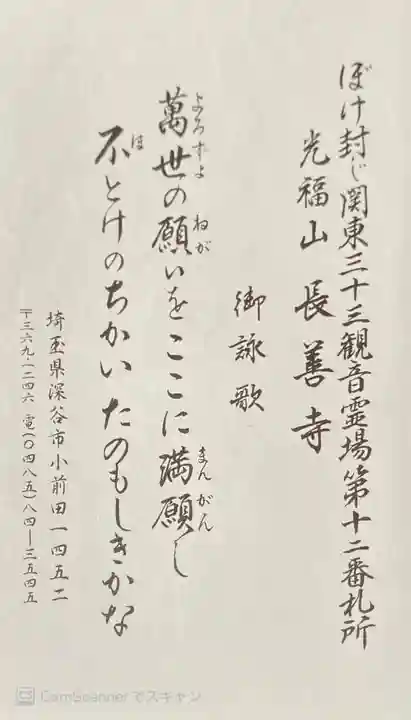 ぼけ封じ関東三十三観音霊場第十二番札所
光福山 長善寺
御詠歌
萬世の願いをここに満願し
よろずよ ねが まんがん
不とけのちかい たのもしきかな
は
埼玉県深谷市小前田一四五二
〒三六九・一二四六 電(〇四八五)八四―三五四五
CamScannerでスキャン